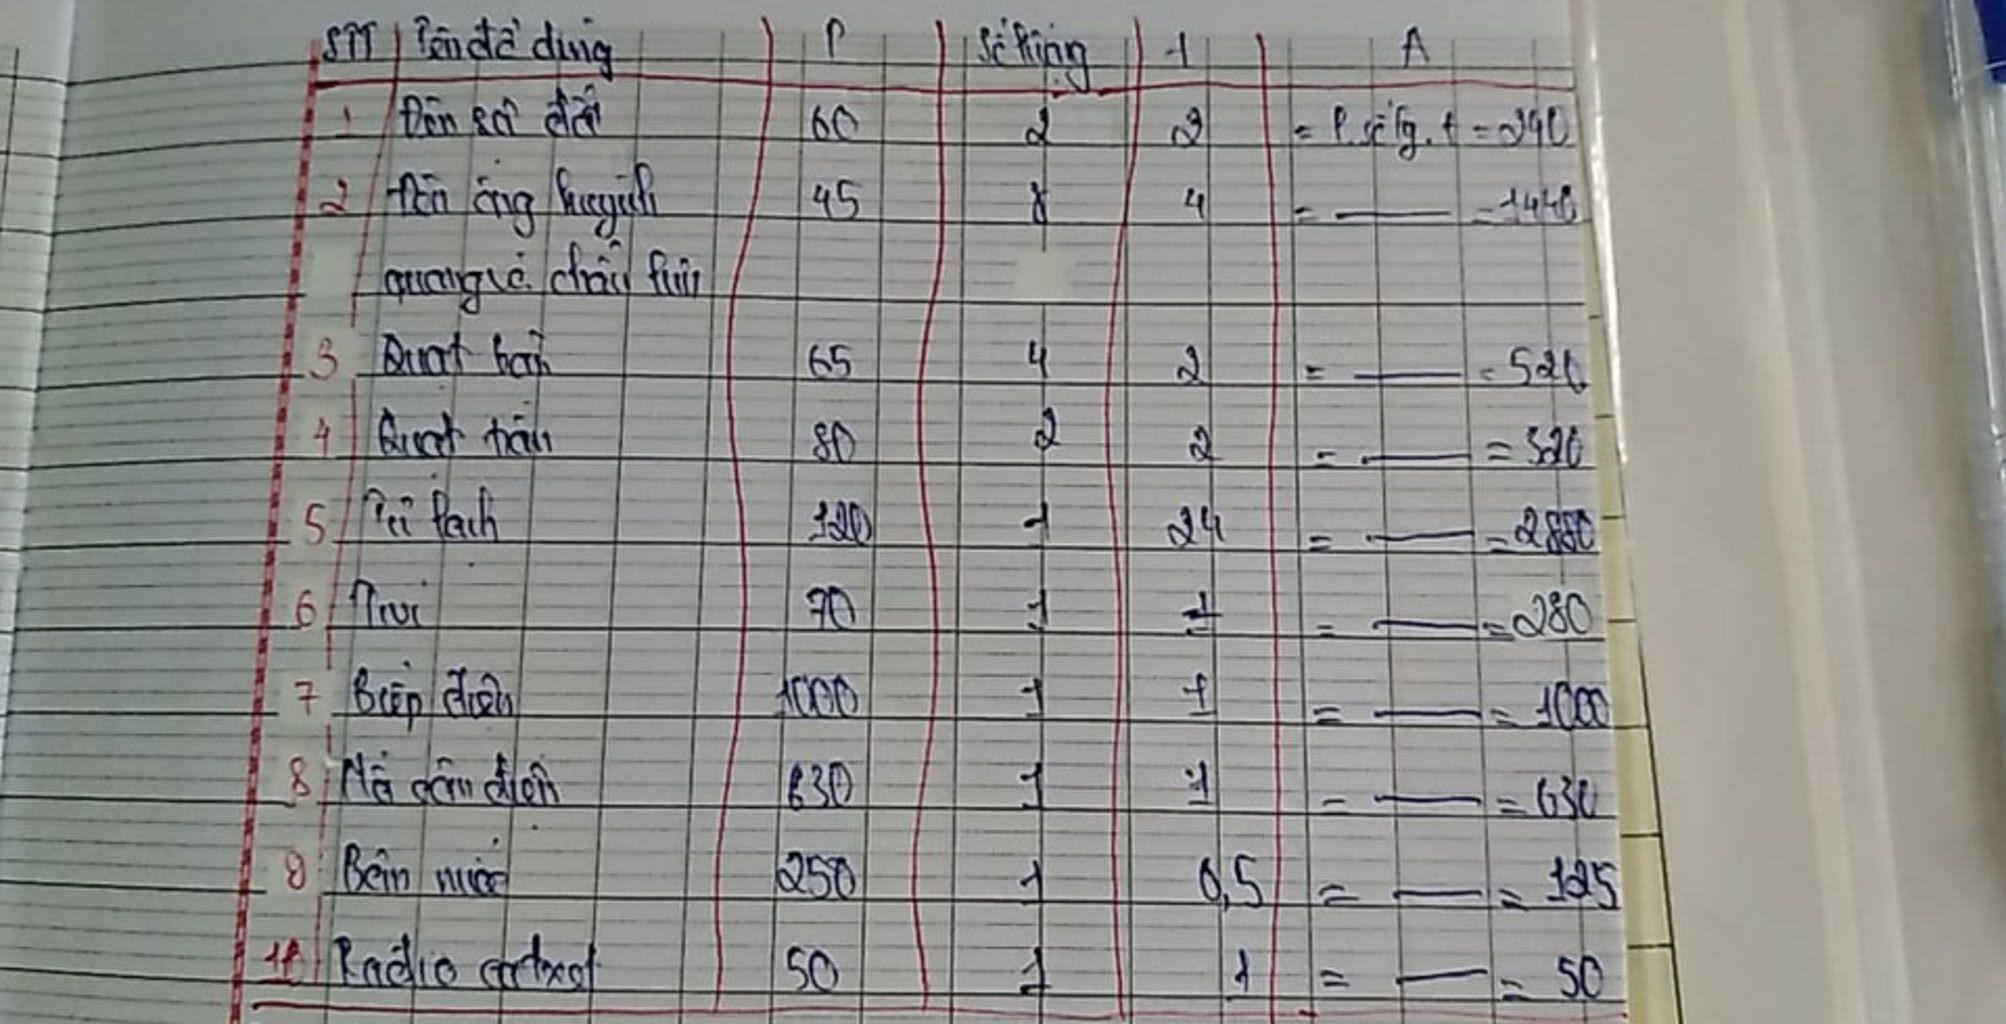 STT Tên đồ dùng P Số lượng t A
1 Đèn sợi đốt 60 2 2 = P.số lg.t = 240
2 Đèn ống huỳnh 45 8 4 = — = 1440
quang và chấn lưu
3 Quạt bàn 65 4 2 = — = 520
4 Quạt trần 80 2 2 = — = 320
5 Tủ lạnh 120 1 24 = — = 2880
6 Tivi 70 1 = — = 280
7 Bếp điện 1000 1 1 = — = 1000
8 Nồ cơm điện 630 1 1 = — = 630
9 Bơm nước 250 1 0,5 = — = 125
Radio 50 1 1 = — = 50